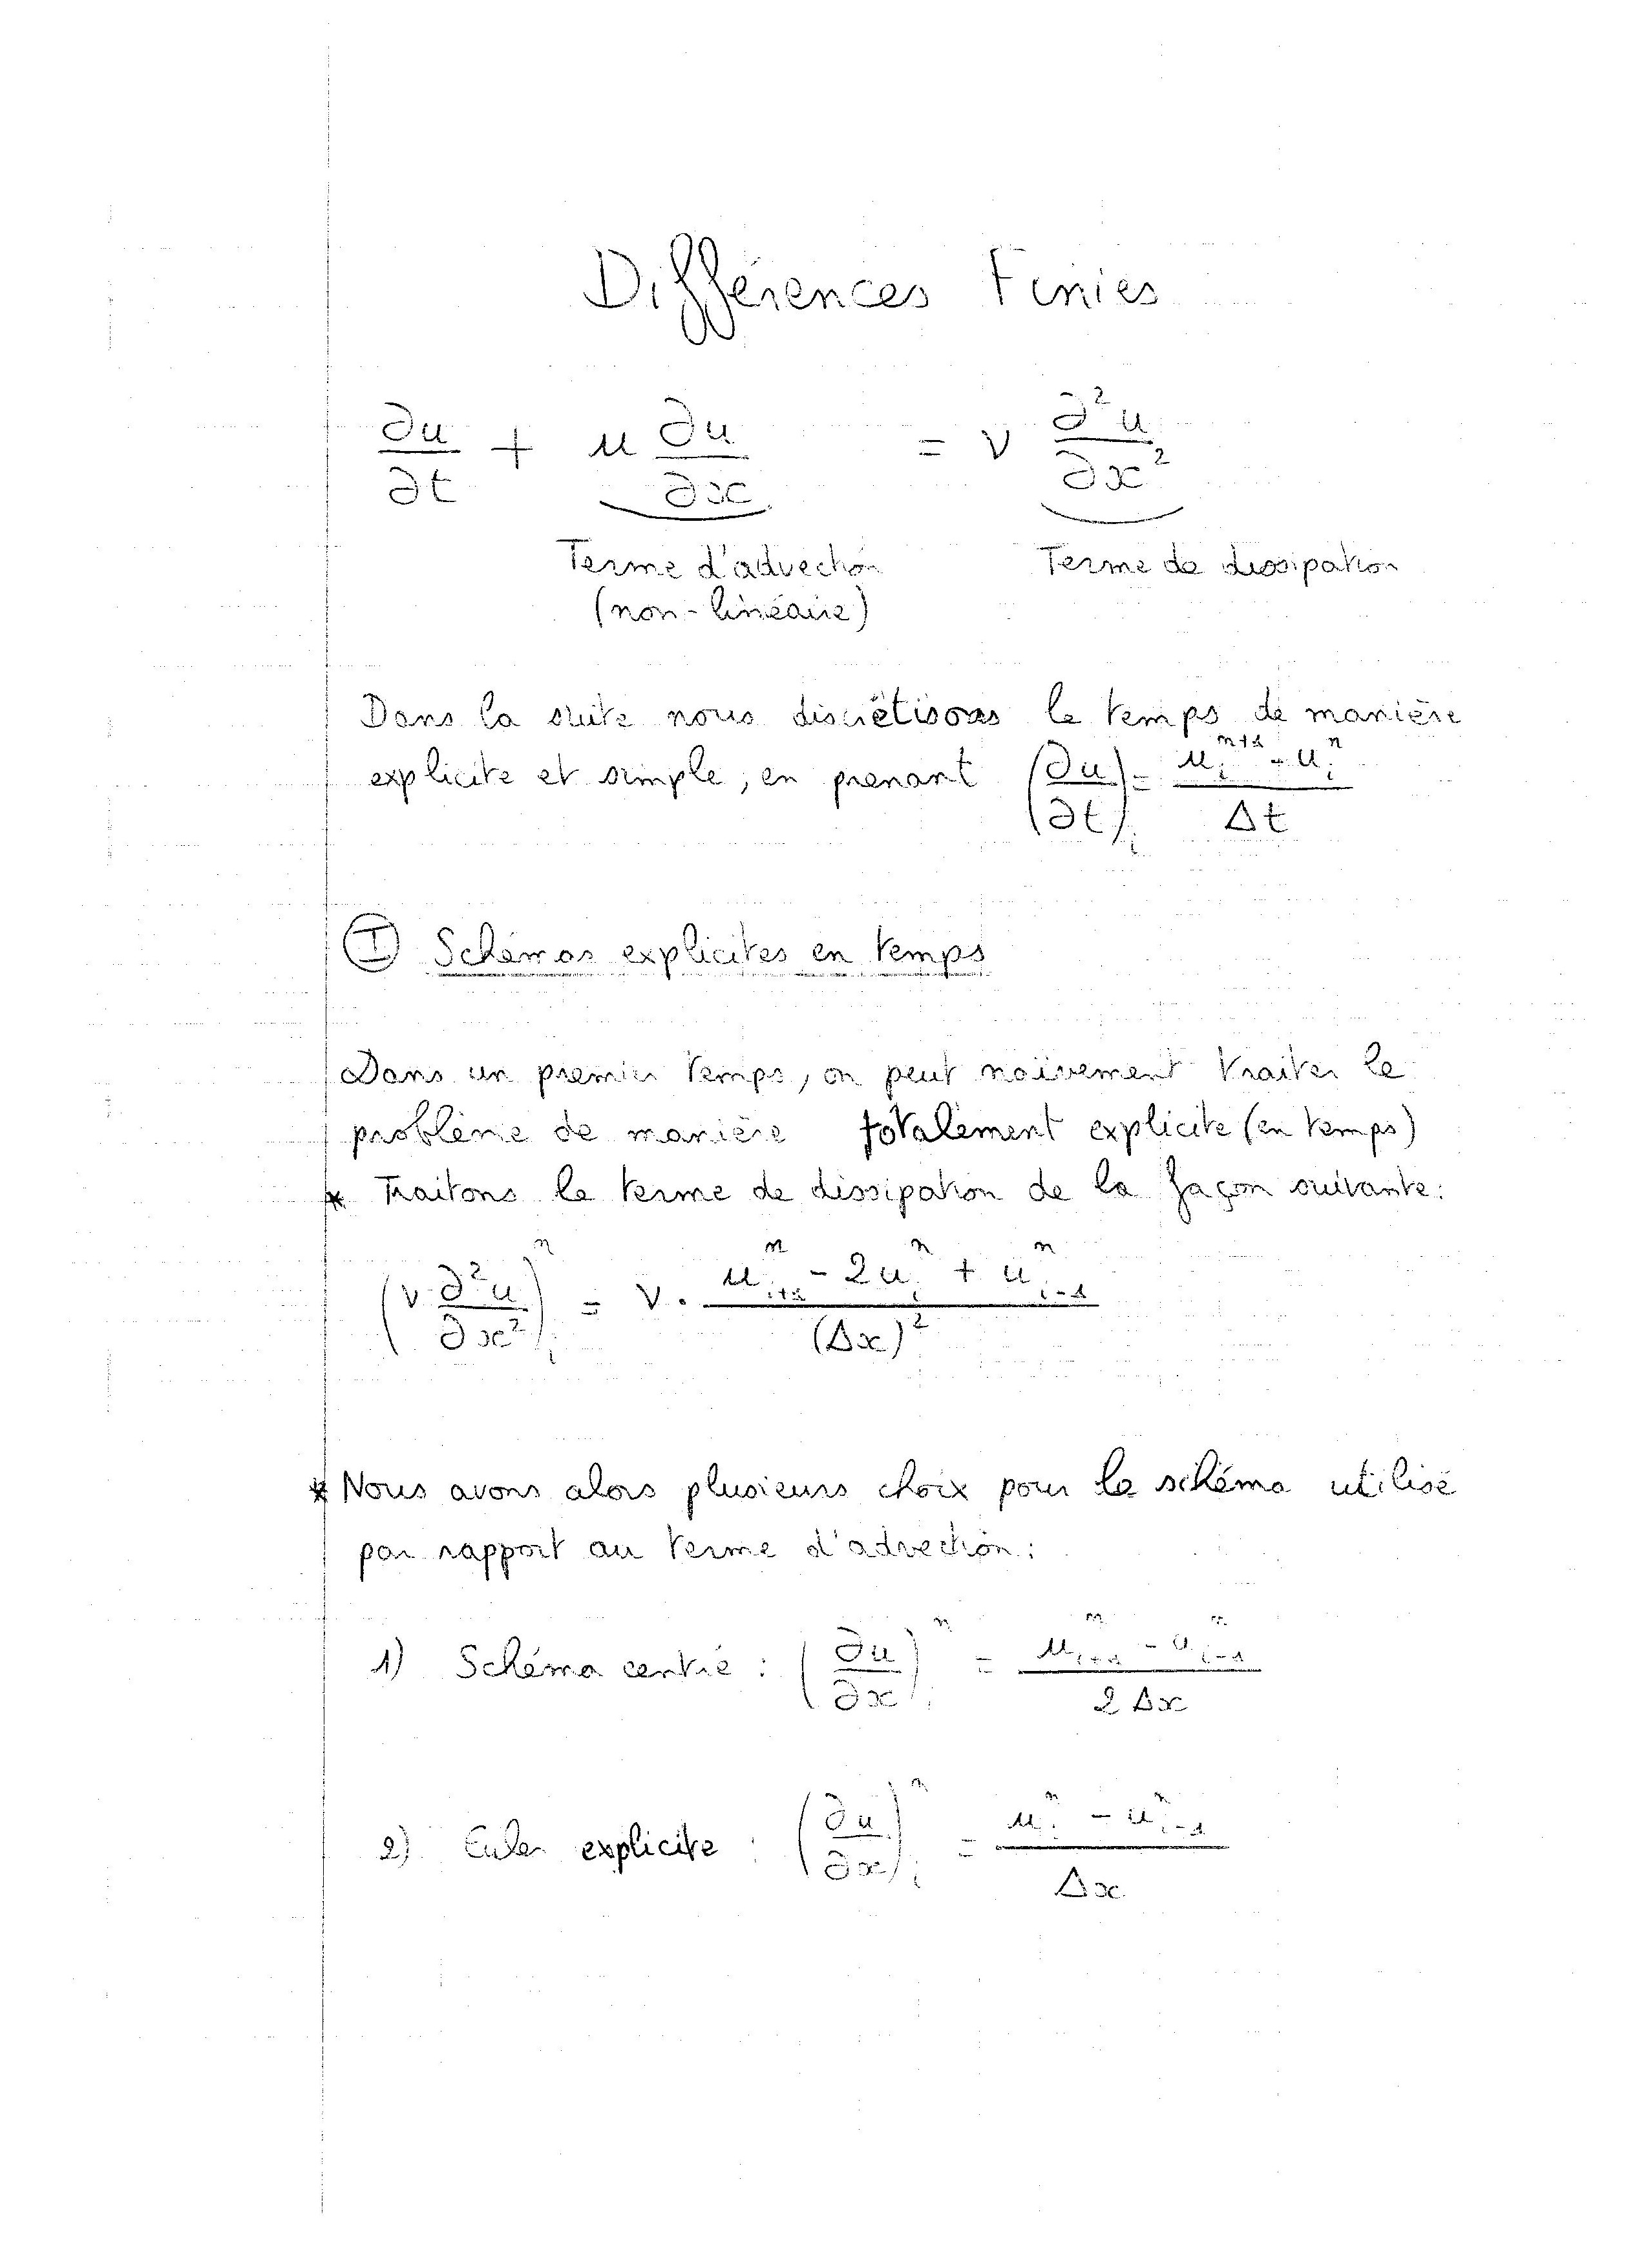 Différences Finies
∂u/∂t + u ∂u/∂x = ν ∂²u/∂x²
Terme d'advection Terme de dissipation
(non-linéaire)
Dans la suite nous discrétisons le temps de manière
explicite et simple, en prenant (∂u/∂t)_i = (u_i^{n+1} - u_i^n)/Δt
I Schémas explicites en temps
Dans un premier temps, on peut naïvement traiter le
problème de manière totalement explicite (en temps)
* Traitons le terme de dissipation de la façon suivante:
(ν ∂²u/∂x²)_i^n = ν · (u_{i+1}^n - 2u_i^n + u_{i-1}^n)/(Δx)²
* Nous avons alors plusieurs choix pour le schéma utilisé
par rapport au terme d'advection:
1) Schéma centré : (∂u/∂x)_i^n = (u_{i+1}^n - u_{i-1}^n)/2Δx
2) Euler explicite : (∂u/∂x)_i^n = (u_i^n - u_{i-1}^n)/Δx